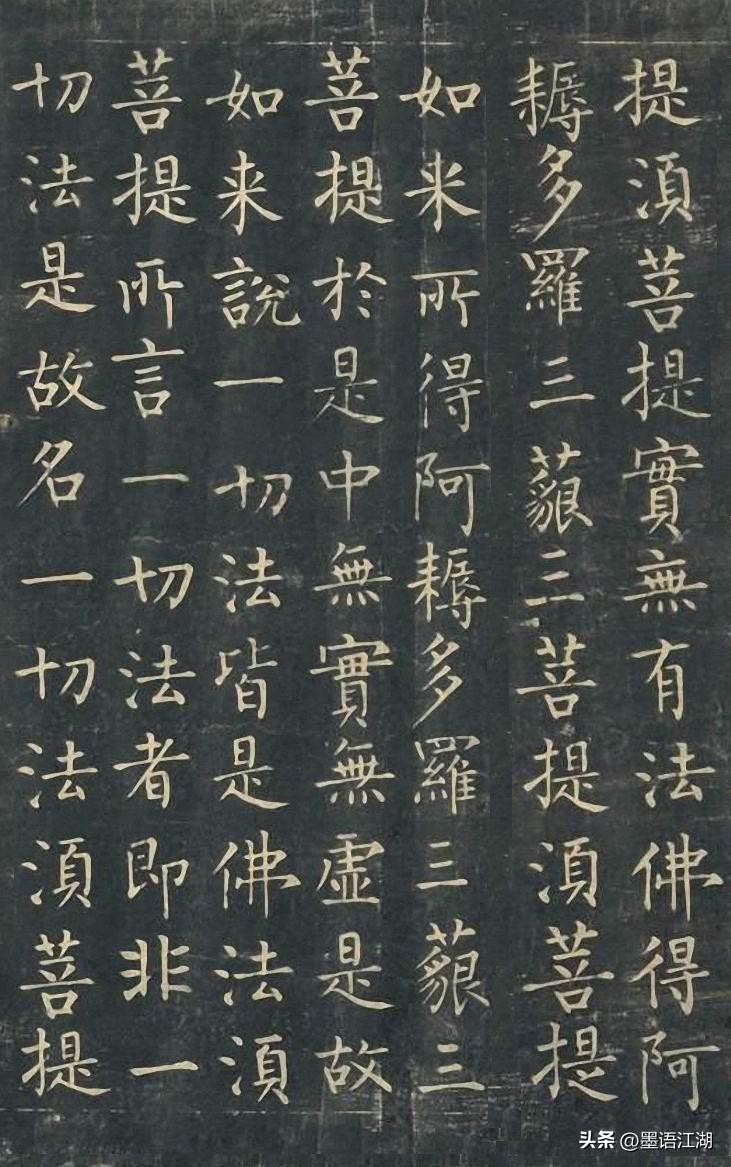 提湏菩提實無有法佛得阿
耨多羅三藐三菩提湏菩提
如来所得阿耨多羅三藐三
菩提於是中無實無虛是故
如来說一切法皆是佛法湏
菩提所言一切法者即非一
切法是故名一切法湏菩提
头条 @墨语江湖